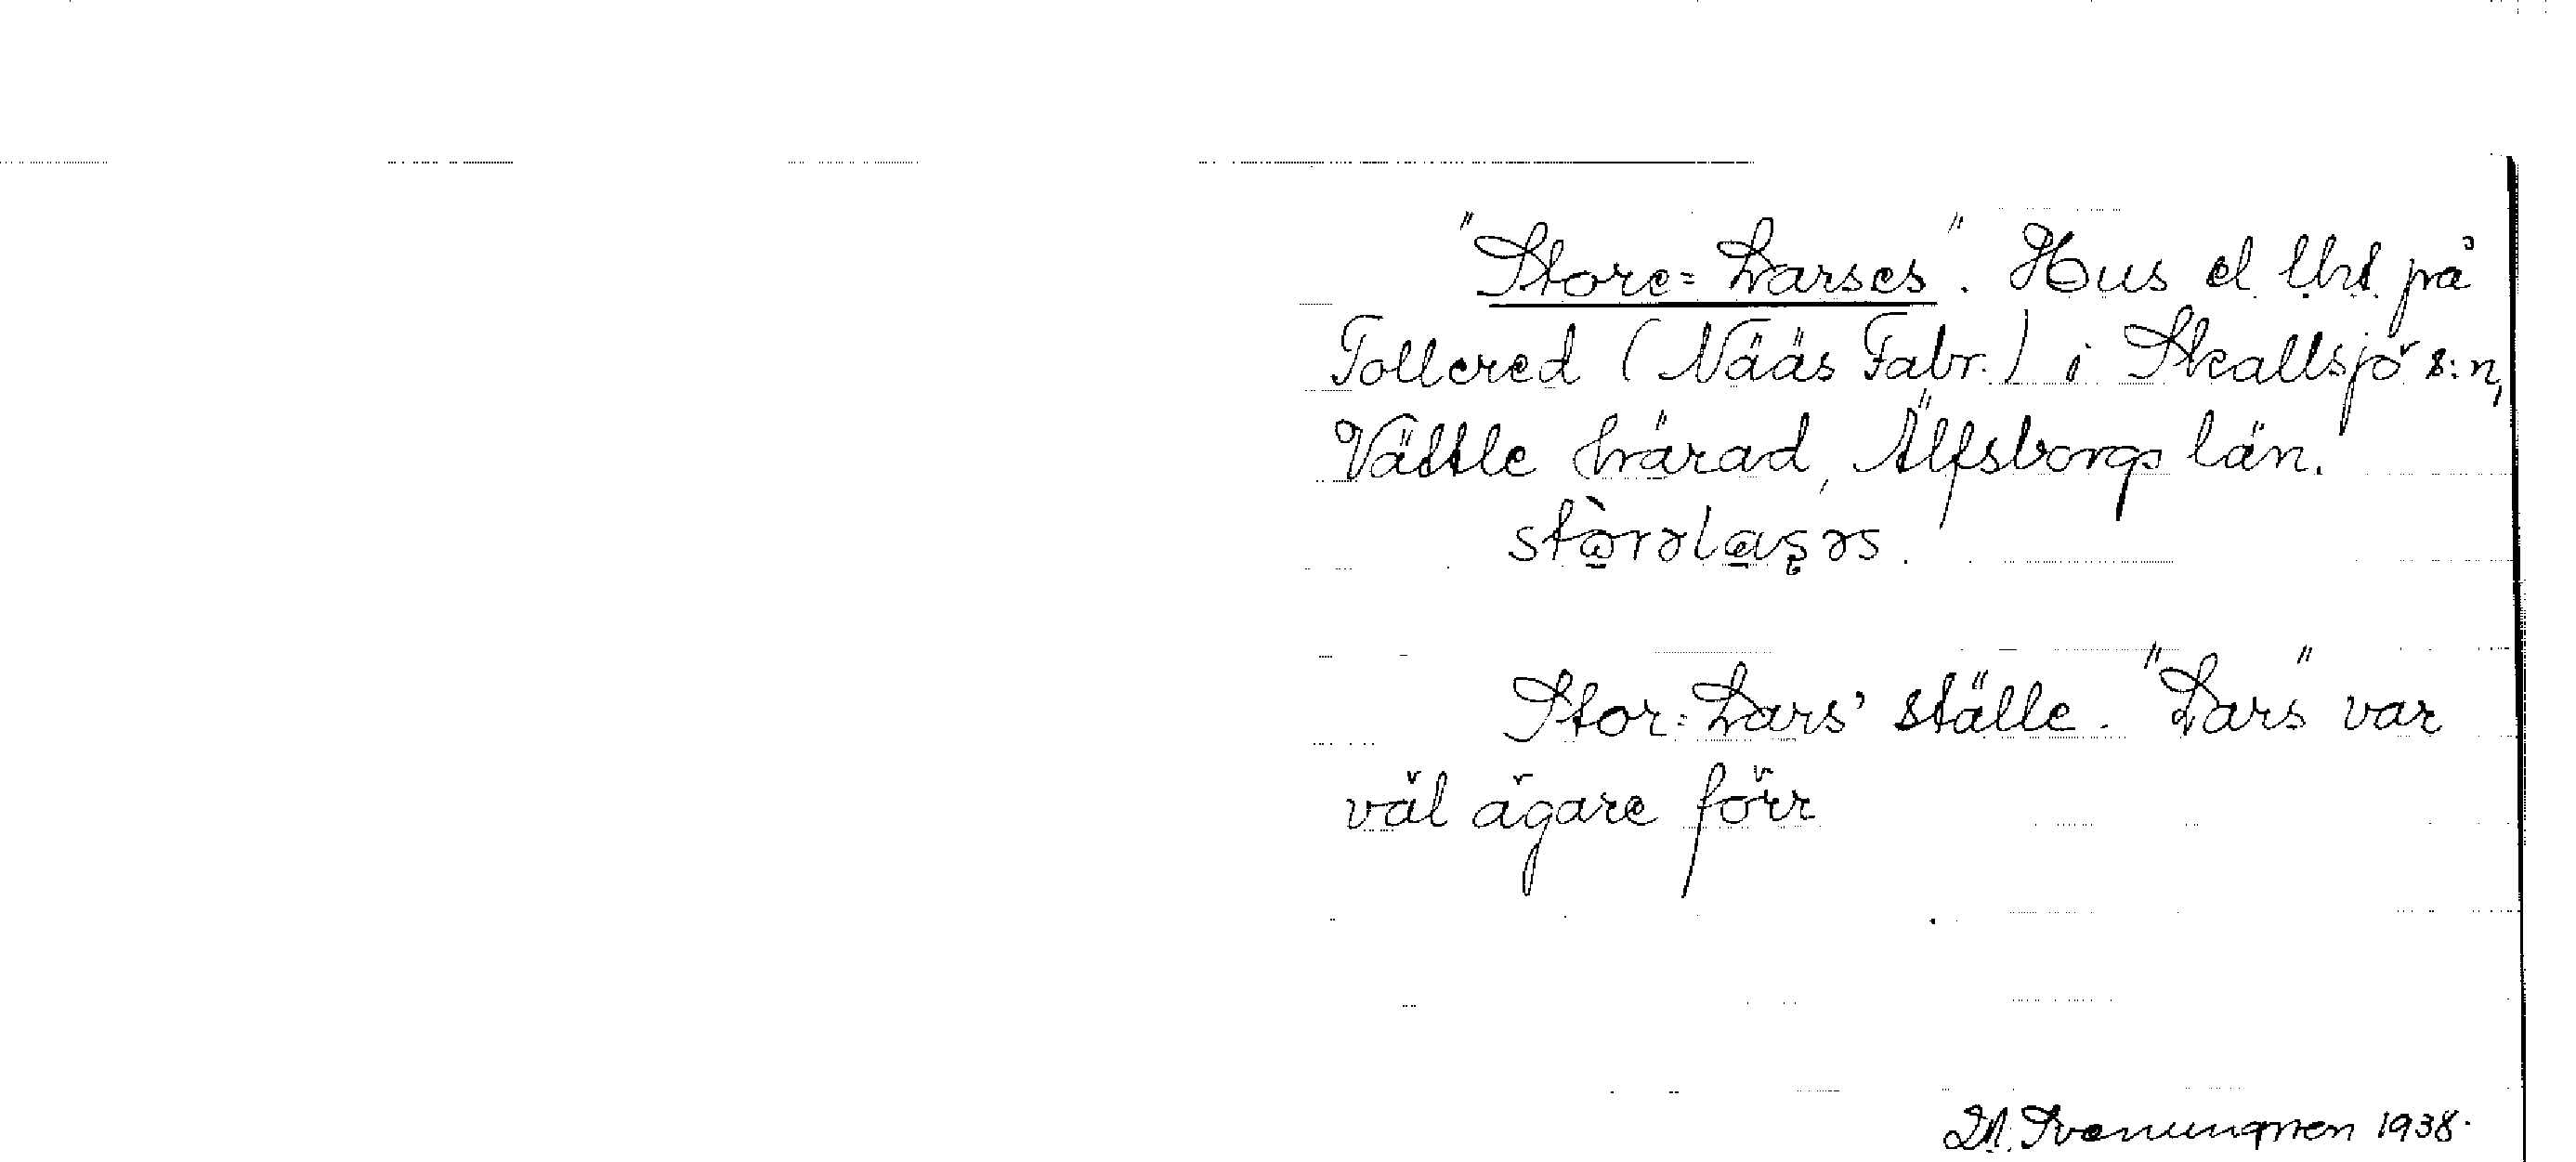 "Store=Larses". Hus el. lht. på
Tollered (Nääs Fabr.) i Skallsjö s:n,
Vättle härad, Älfsborgs län.
stòrəlaʂəs.
Stor=Lars' ställe. "Lars" var
väl ägare förr
1938.